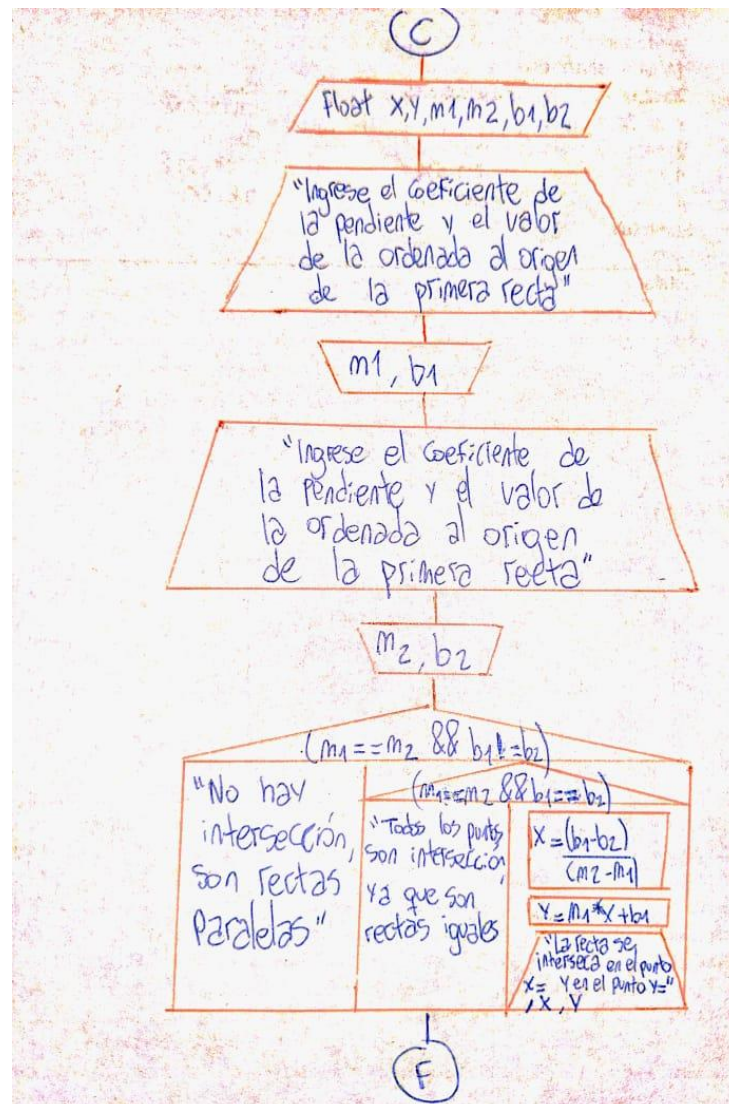 C
Float X,Y,m1,m2,b1,b2
"Ingrese el coeficiente de
la pendiente y el valor
de la ordenada al origen
de la primera recta"
m1, b1
"Ingrese el coeficiente de
la pendiente y el valor de
la ordenada al origen
de la primera recta"
m2, b2
(m1==m2 && b1!=b2)
"No hay
intersección,
son rectas
Paralelas"
(m1==m2 && b1==b2)
"Todos los puntos
son intersección,
ya que son
rectas iguales
X=(b1-b2)
(m2-m1)
Y=m1*X+b1
"La recta se
interseca en el punto
X= Y en el punto Y="
, X, Y
F